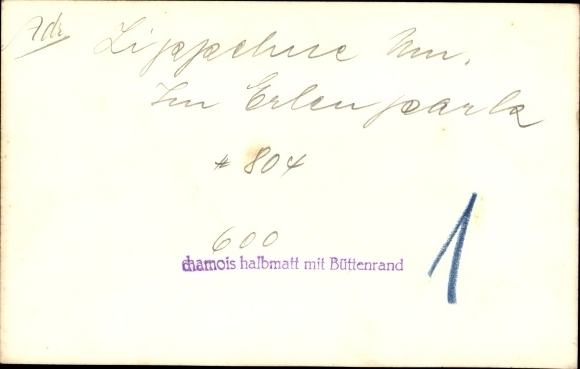 Adr
Lippehne Nm.
Im Erlenpark
* 804
600
chamois halbmatt mit Büttenrand
1